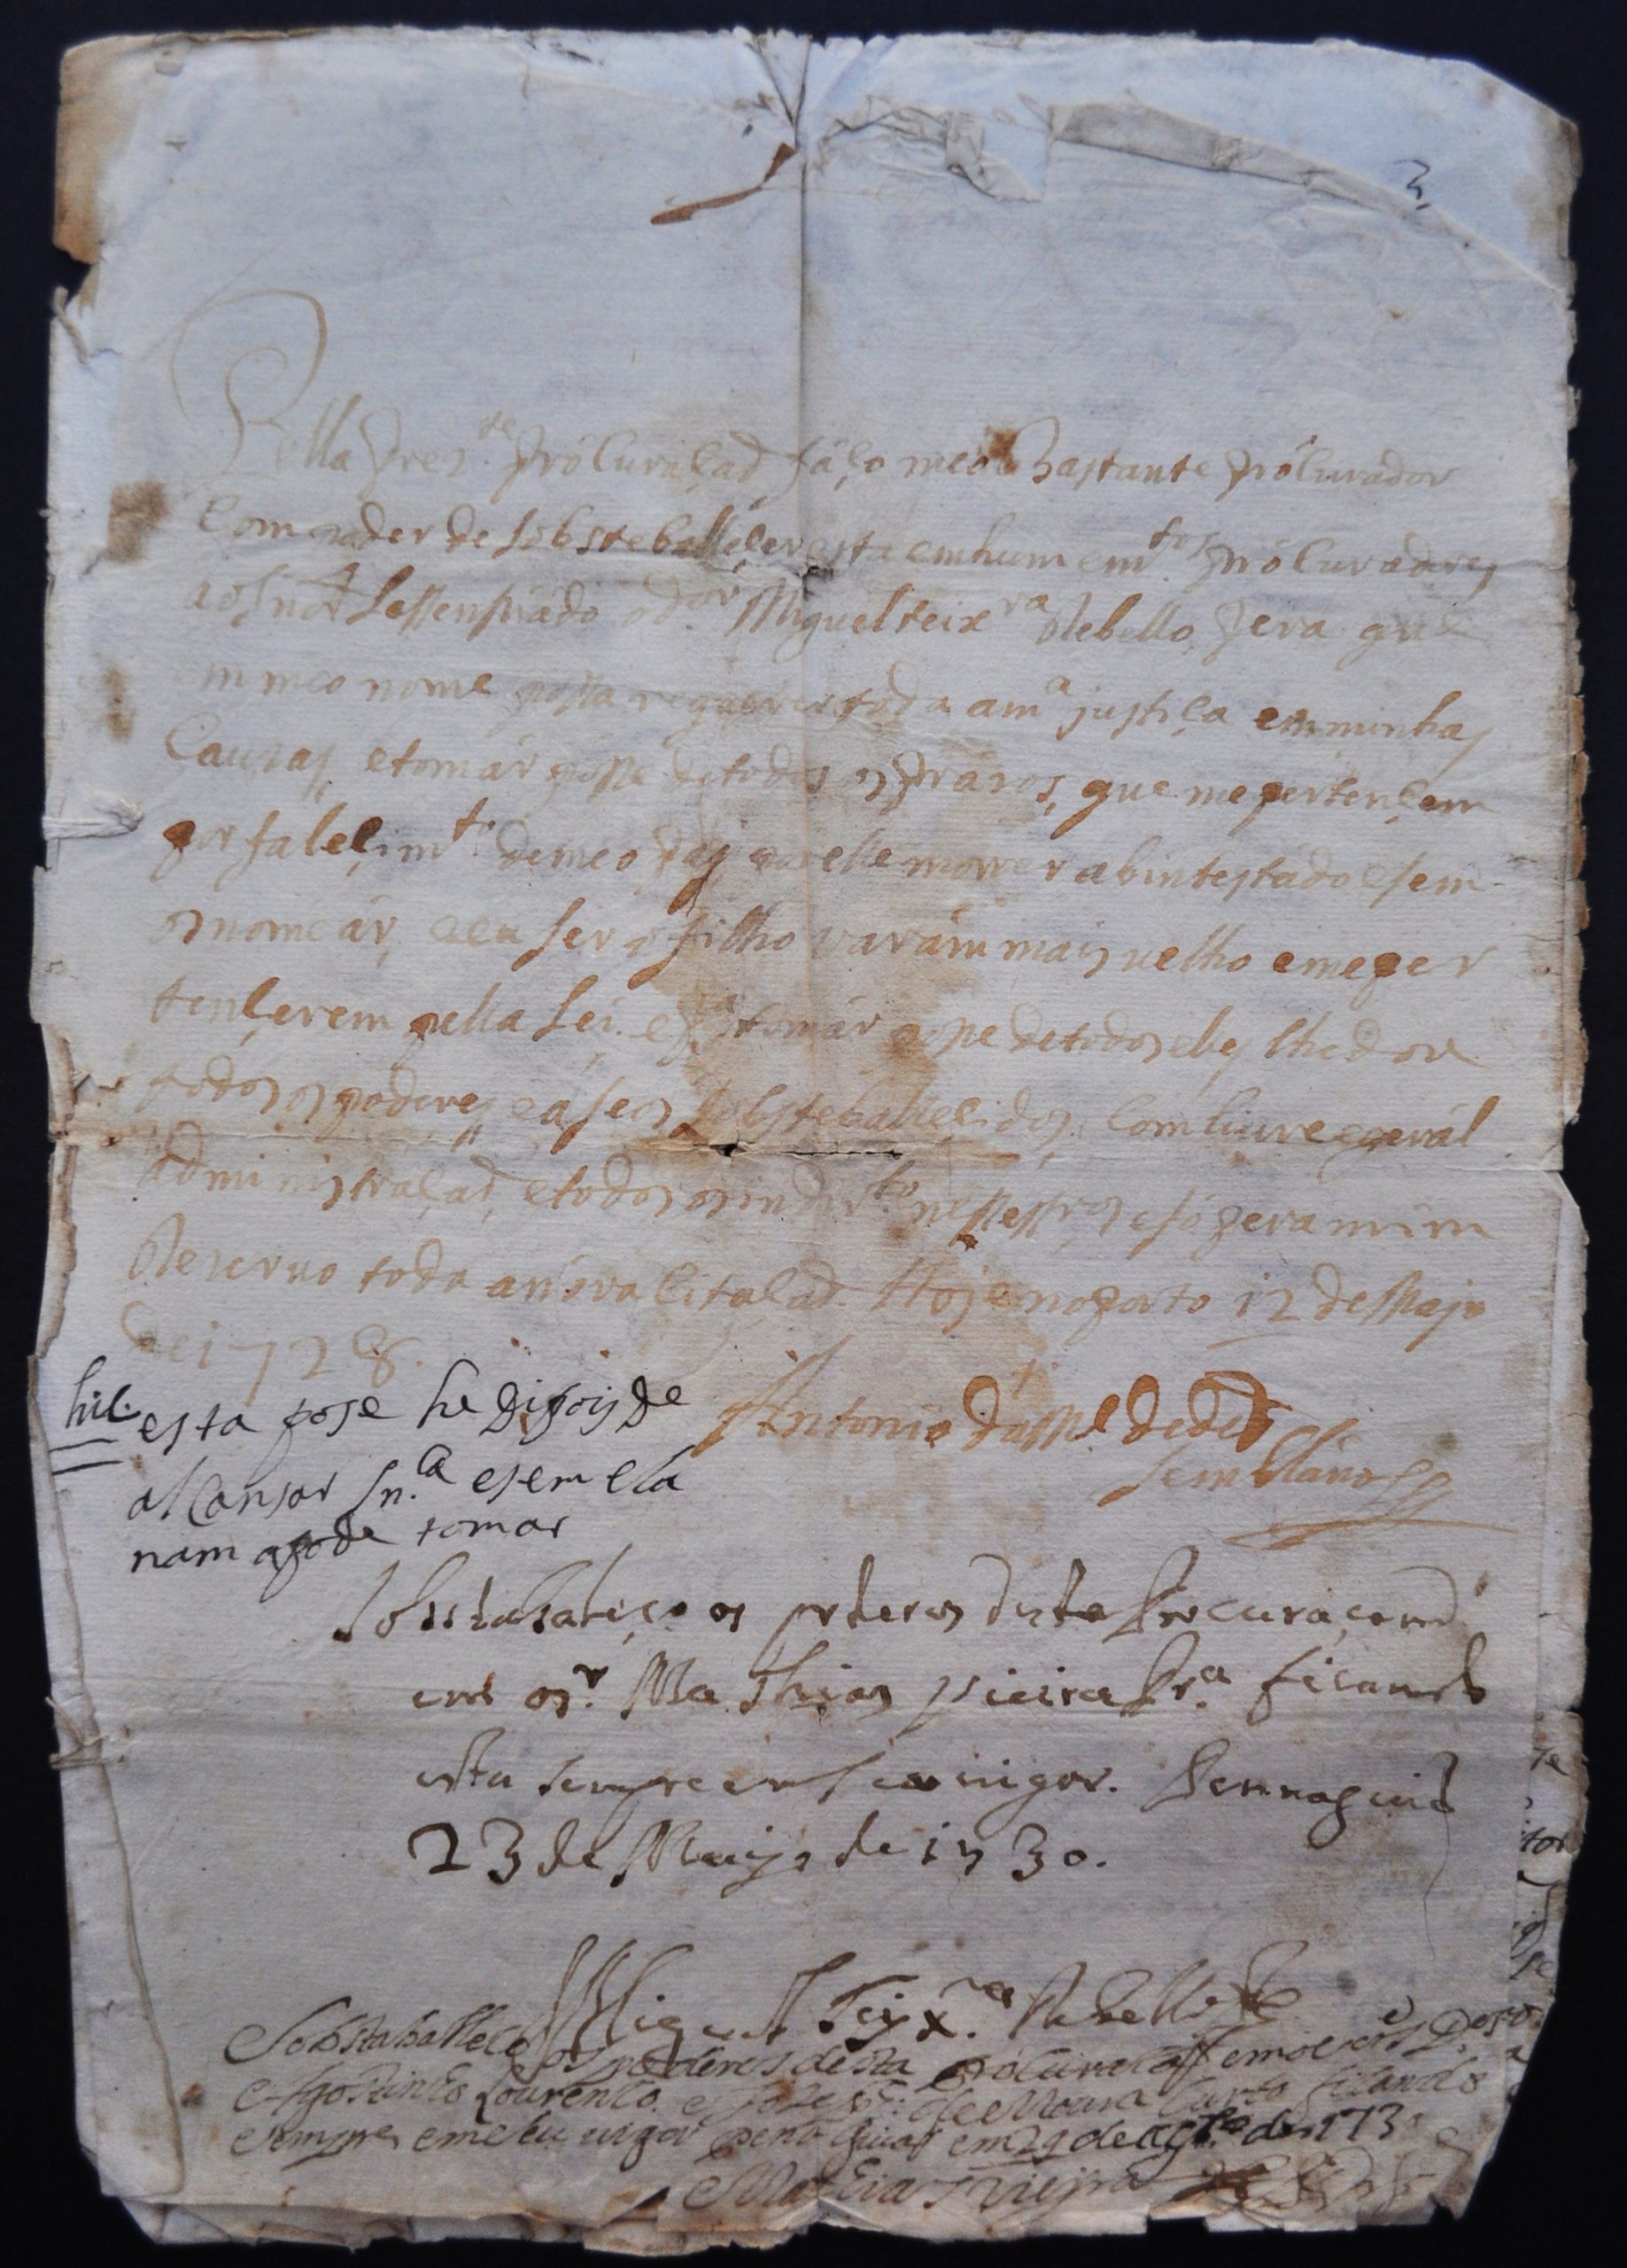 3
Pella pres.te procuração faço meo bastante procurador
com poder de sobstebalecer esta em hum e m.tos procuradores
ao s.nor Lessensiado o d.or Miguel Teix.ra Rebello, pera que
em meo nome possa requerer toda a m.a justiça em minhas
cauzas, e tomár posse de todos os prazos, que me pertençem
por faleçim.to de meo pay por elle morrer abintestádo e sem
os nomeár, e eu ser o filho varám mais velho e me per
tençerem pella Lei. e p.a tomár posse de todos elles lhe dou
todos os poderes e a seos sobstebaleçidos, com livre e gerál
administração, e todos os in dir.to nessessr.os e só pera mim
Reservo toda a nova citação. Hoje no Porto 12 de Mayo
de 1728.
Antonio
hic. esta pose he dipois de
alcansar sn.ca e sem ela
nam a pode tomar
Sobstabaleço os poderes desta Procuraçam
em o s.r Mathias Vieira Pr.a ficando
esta sempre em seu vigor. Pennaguião
23 de Mayo de 1730.
Miguel Teyx.ra Rebello
Sobstaballeço os poderes desta procuração em o
Agostinho Lourenço. e de Moura Ficando
sempre em seu vigor penaguião em 29 de ag.to de 173
Mathias Vieyra